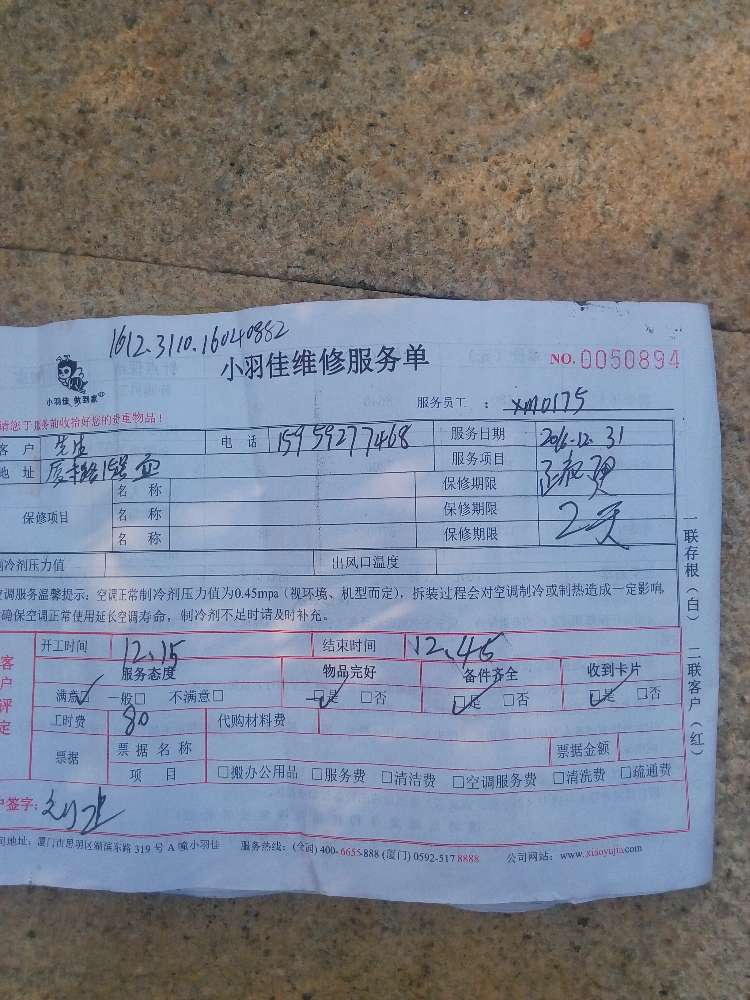 1612.3110.16040882
小羽佳 做到家
小羽佳维修服务单
NO. 0050894
服务员工 : xm0175
请您于服务前收拾好您的贵重物品!
客 户 先生 电 话 15959277468 服务日期 2016.12.31
地 址 服务项目
保修项目 名 称 保修期限
名 称 保修期限 2天
名 称 保修期限
制冷剂压力值 出风口温度
空调服务温馨提示:空调正常制冷剂压力值为0.45mpa(视环境、机型而定),拆装过程会对空调制冷或制热造成一定影响,
确保空调正常使用延长空调寿命,制冷剂不足时请及时补充。
客户评定
开工时间 12.15 结束时间 12.45
服务态度 物品完好 备件齐全 收到卡片
满意□ 一般□ 不满意□ □是 □否 □是 □否 □是 □否
工时费 80 代购材料费
票据 票据名称 票据金额
项 目 □搬办公用品 □服务费 □清洁费 □空调服务费 □清洗费 □疏通费
户签字:
司地址:厦门市思明区湖滨东路 319 号 A 幢小羽佳 服务热线:(全国) 400-6655-888 (厦门) 0592-517 8888 公司网站:www.xiaoyujia.com
一联存根(白) 二联客户(红)